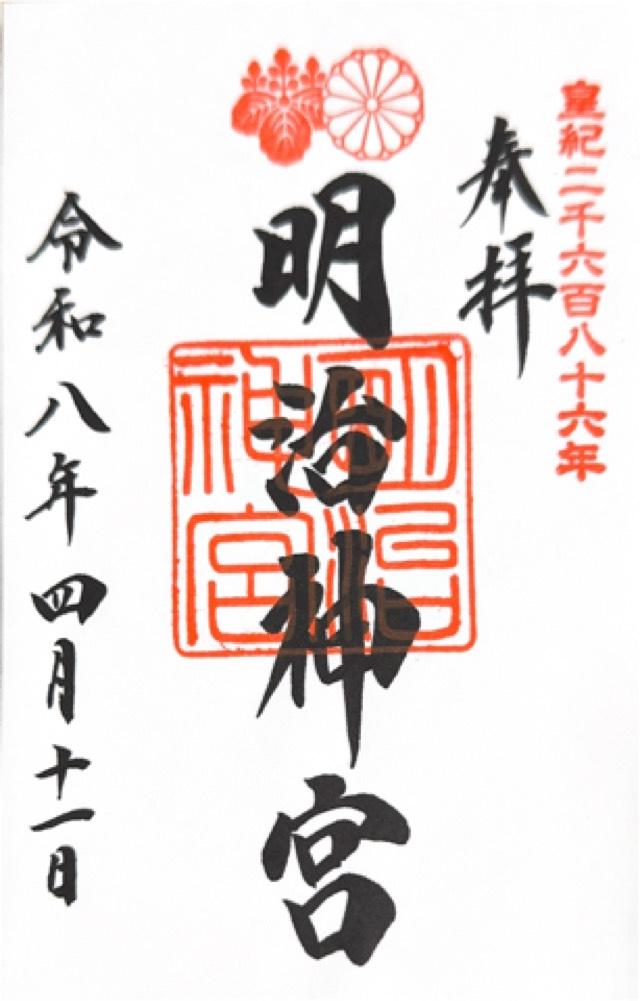 皇紀二千六百八十六年
奉拝
明治神宮
明治神宮
令和八年四月十一日